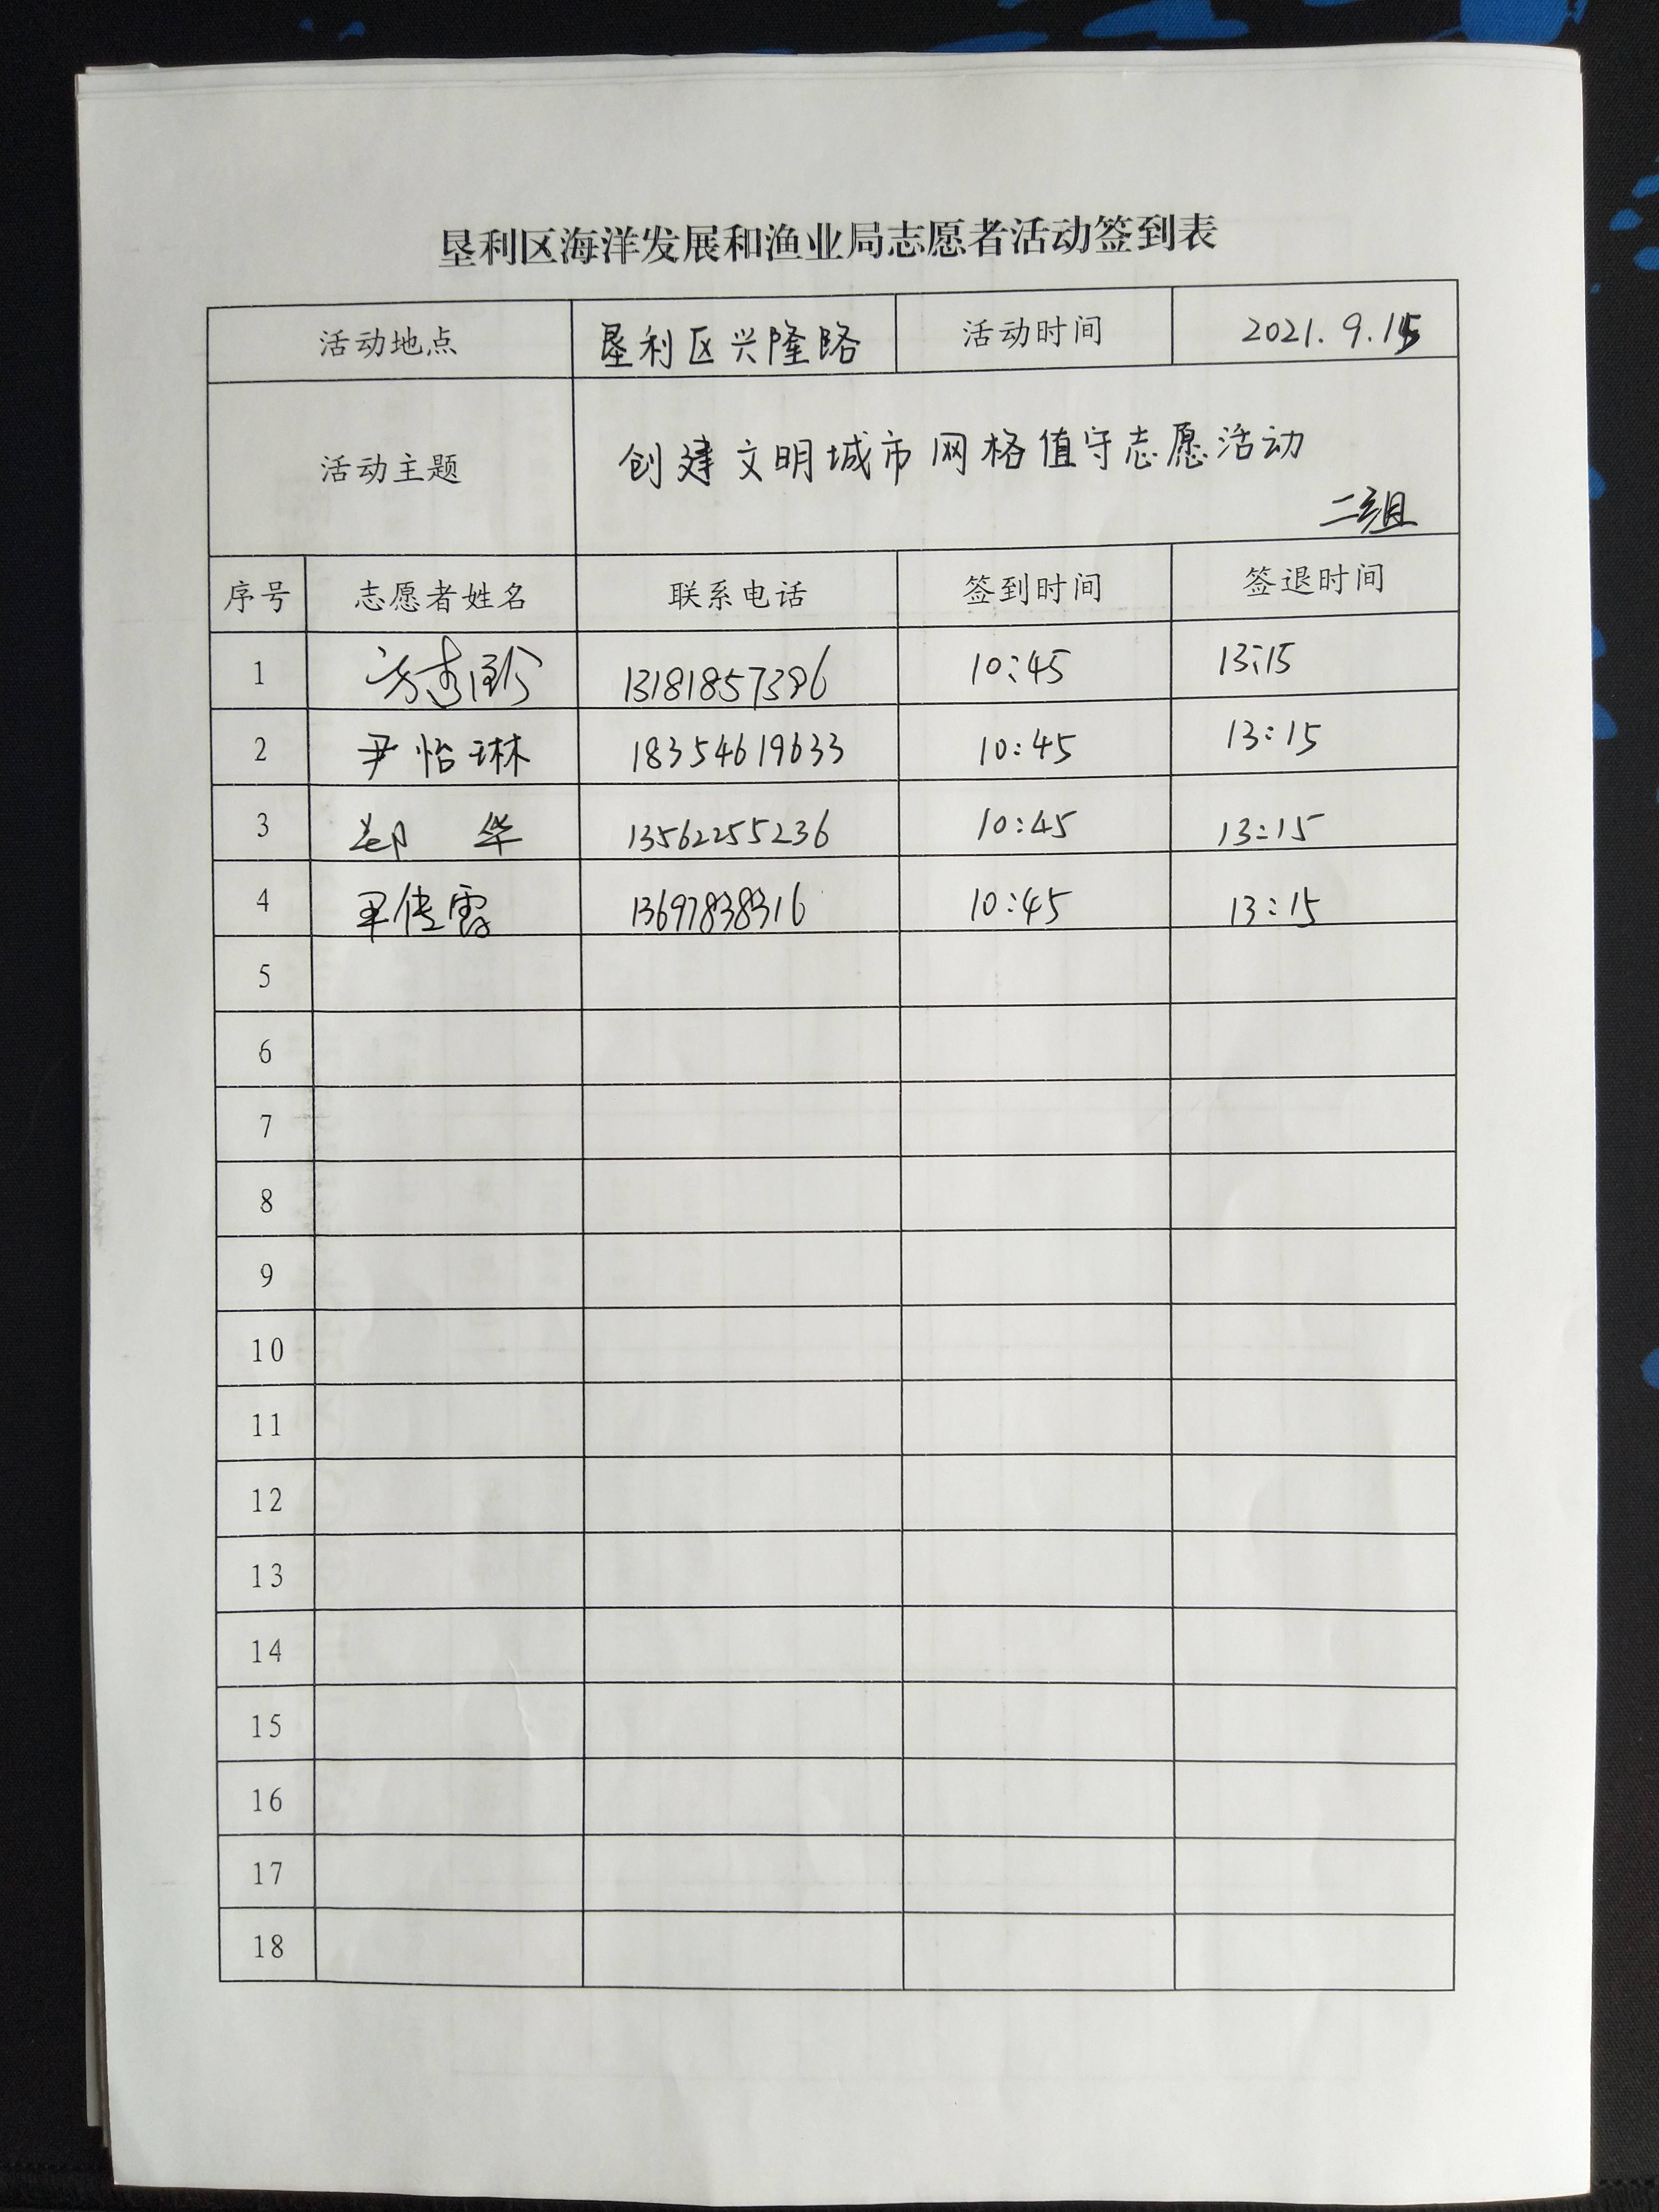 垦利区海洋发展和渔业局志愿者活动签到表
活动地点 垦利区兴隆路 活动时间 2021.9.15
活动主题 创建文明城市网格值守志愿活动
二组
序号 志愿者姓名 联系电话 签到时间 签退时间
1 13181857396 10:45 13:15
2 尹怡琳 18354619633 10:45 13:15
3 华 13562255236 10:45 13:15
4 13697838316 10:45 13:15
5
6
7
8
9
10
11
12
13
14
15
16
17
18